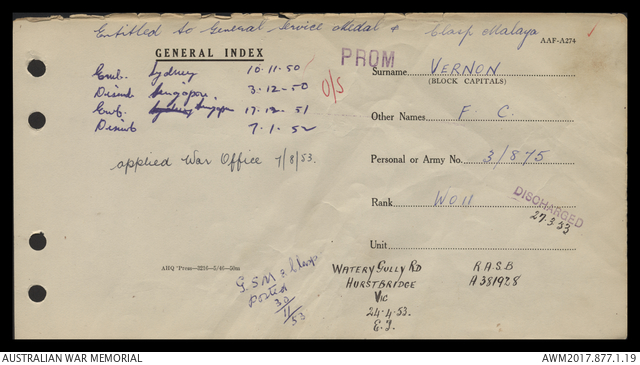 Entitled to General Service Medal & Clasp Malaya
AAF-A274
GENERAL INDEX
PROM
Surname VERNON
(BLOCK CAPITALS)
Emb. Sydney 10.11.50
Disemb Singapore. 3.12.50
O/S
Emb. Singapore 17.12.51
Disemb 7.1.52
Other Names F. C.
applied War Office 7/8/53.
Personal or Army No. 3/875
Rank WO II
DISCHARGED
27.3.53
Unit
AHQ Prom—3216—2/46—20m
G.S.M & Clasp
posted
30/11/53
WATERY GULLY RD
HURSTBRIDGE
VIC
24.4.53.
E.J.
R.A.S.B
A381928
AUSTRALIAN WAR MEMORIAL
AWM2017.877.1.19